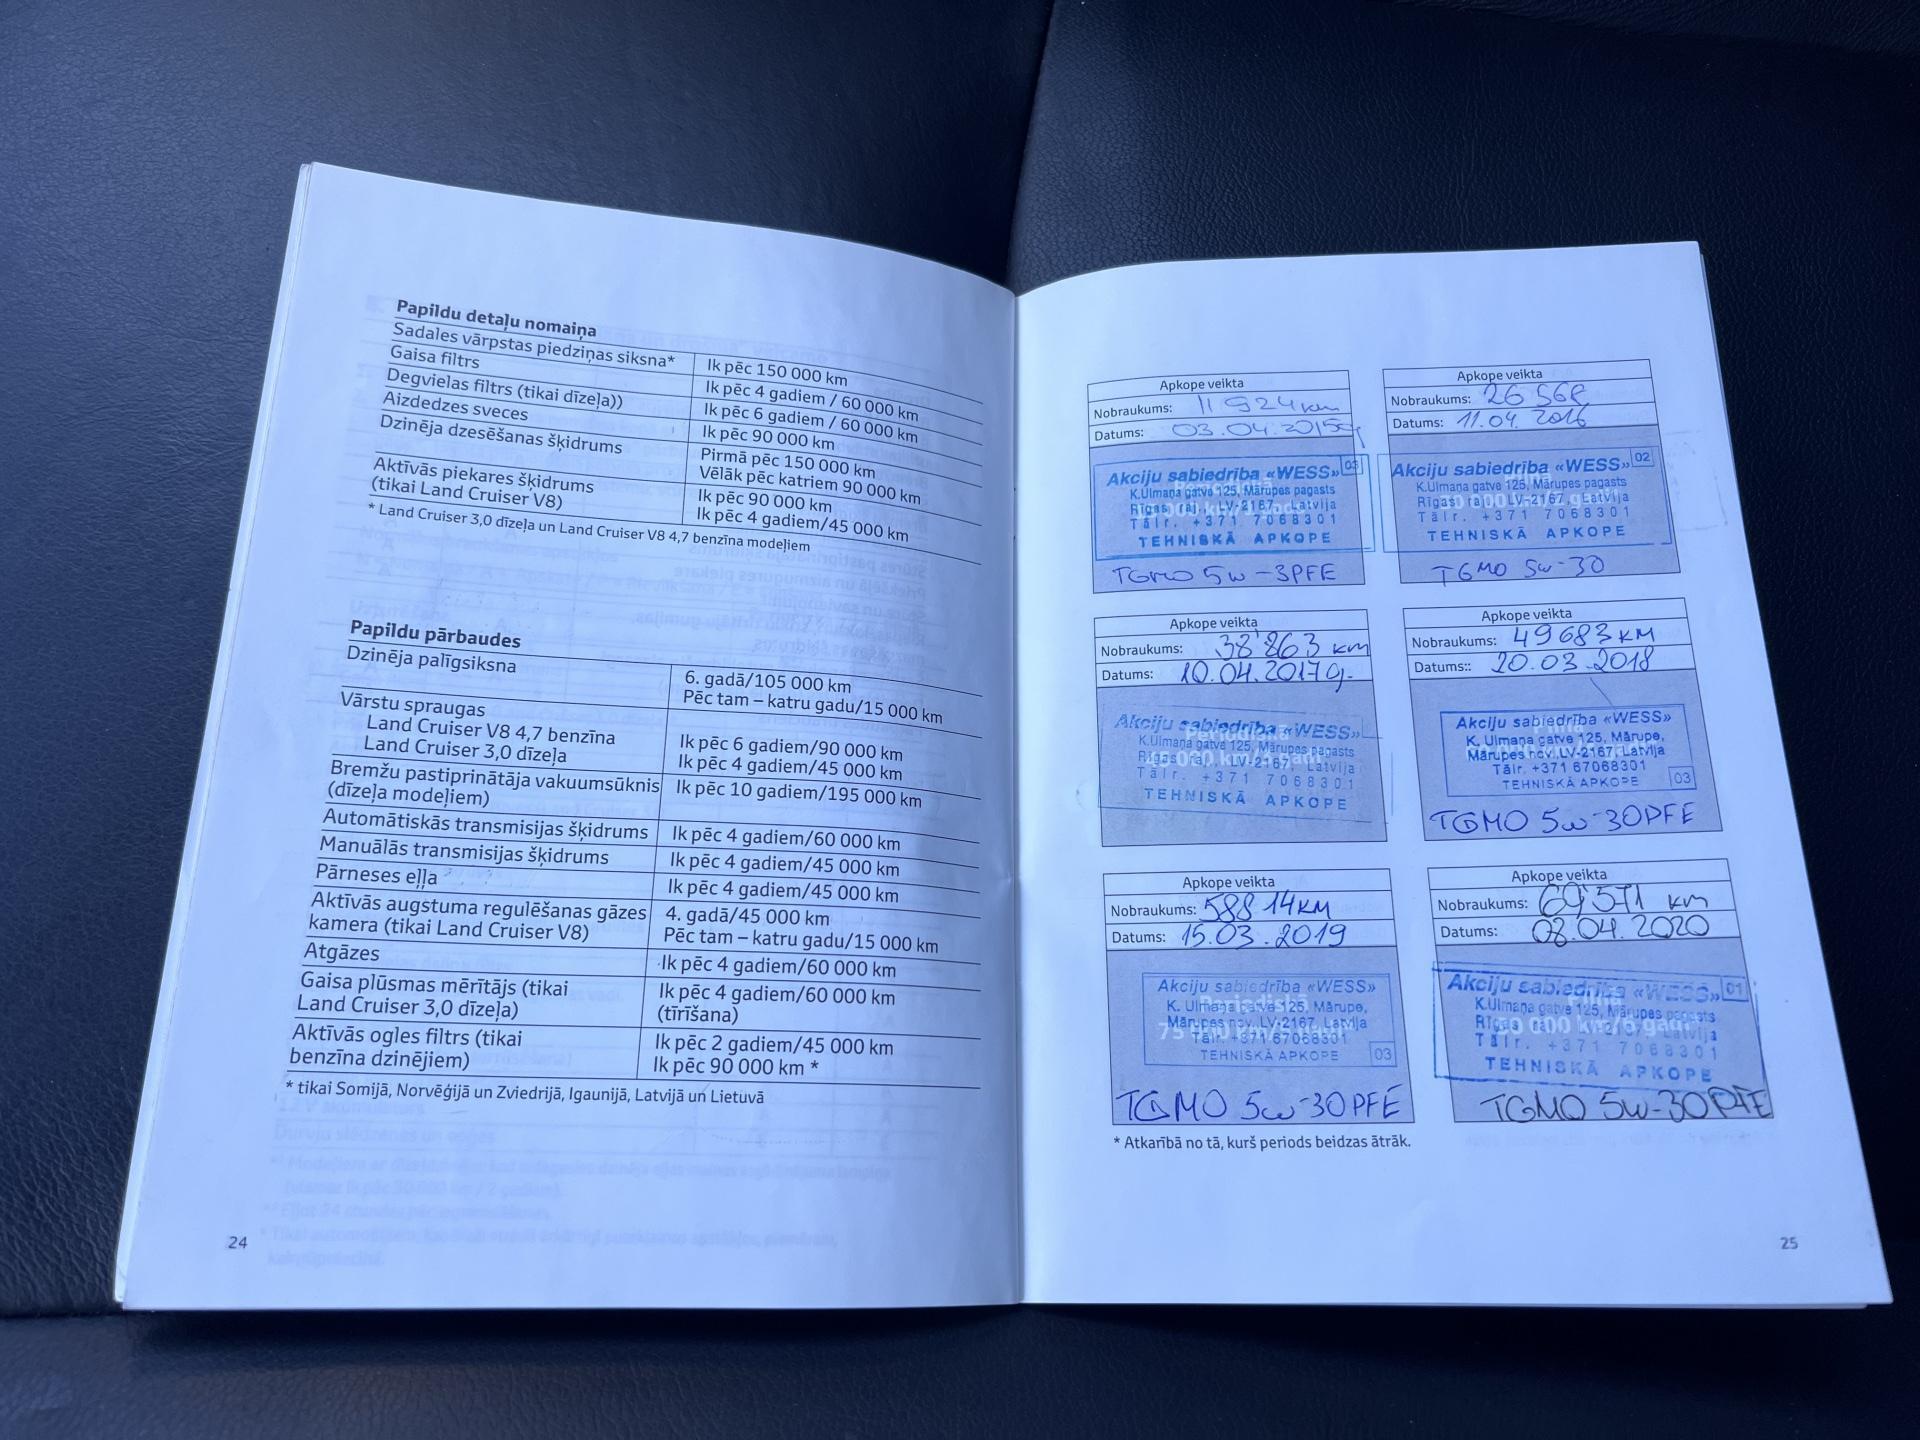 Papildu detaļu nomaiņa
Sadales vārpstas piedziņas siksna* Ik pēc 150 000 km
Gaisa filtrs Ik pēc 4 gadiem / 60 000 km
Degvielas filtrs (tikai dīzeļa)) Ik pēc 6 gadiem / 60 000 km
Aizdedzes sveces Ik pēc 90 000 km
Dzinēja dzesēšanas šķidrums Pirmā pēc 150 000 km
Vēlāk pēc katriem 90 000 km
Aktīvās piekares šķidrums Ik pēc 90 000 km
(tikai Land Cruiser V8) Ik pēc 4 gadiem/45 000 km
* Land Cruiser 3,0 dīzeļa un Land Cruiser V8 4,7 benzīna modeļiem
Papildu pārbaudes
Dzinēja palīgsiksna 6. gadā/105 000 km
Pēc tam – katru gadu/15 000 km
Vārstu spraugas
Land Cruiser V8 4,7 benzīna Ik pēc 6 gadiem/90 000 km
Land Cruiser 3,0 dīzeļa Ik pēc 4 gadiem/45 000 km
Bremžu pastiprinātāja vakuumsūknis Ik pēc 10 gadiem/195 000 km
(dīzeļa modeļiem)
Automātiskās transmisijas šķidrums Ik pēc 4 gadiem/60 000 km
Manuālās transmisijas šķidrums Ik pēc 4 gadiem/45 000 km
Pārneses eļļa Ik pēc 4 gadiem/45 000 km
Aktīvās augstuma regulēšanas gāzes 4. gadā/45 000 km
kamera (tikai Land Cruiser V8) Pēc tam – katru gadu/15 000 km
Atgāzes Ik pēc 4 gadiem/60 000 km
Gaisa plūsmas mērītājs (tikai Ik pēc 4 gadiem/60 000 km
Land Cruiser 3,0 dīzeļa) (tīrīšana)
Aktīvās ogles filtrs (tikai Ik pēc 2 gadiem/45 000 km
benzīna dzinējiem) Ik pēc 90 000 km *
* tikai Somijā, Norvēģijā un Zviedrijā, Igaunijā, Latvijā un Lietuvā
24
Apkope veikta
Nobraukums: 11 924 km
Datums: 03.04.2015g
Akciju sabiedrība «WESS» 03
K.Ulmaņa gatve 125, Mārupes pagasts
Rīgas raj. LV-2167, Latvija
Tālr. +371 7068301
TEHNISKĀ APKOPE
TGMO 5w-3PFE
Apkope veikta
Nobraukums: 26 568
Datums: 11.04. 2016
Akciju sabiedrība «WESS» 02
K.Ulmaņa gatve 125, Mārupes pagasts
Rīgas raj. LV-2167, Latvija
Tālr. +371 7068301
TEHNISKĀ APKOPE
TGMO 5w-30
Apkope veikta
Nobraukums: 38'863 km
Datums: 10.04.2017g.
Akciju sabiedrība «WESS»
Periodiskā
K.Ulmaņa gatve 125, Mārupes pagasts
Rīgas raj. LV-2167, Latvija
Tālr. +371 7068301
TEHNISKĀ APKOPE
Apkope veikta
Nobraukums: 49683 KM
Datums:: 20.03.2018
Akciju sabiedrība «WESS»
K. Ulmaņa gatve 125, Mārupe,
Mārupes nov. LV-2167, Latvija
Tālr. +371 67068301
TEHNISKĀ APKOPE 03
TGMO 5w-30PFE
Apkope veikta
Nobraukums: 58814KM
Datums: 15.03.2019
Akciju sabiedrība «WESS»
Periodiskā
K. Ulmaņa gatve 125, Mārupe,
Mārupes nov. LV-2167, Latvija
Tālr. +371 67068301
TEHNISKĀ APKOPE 03
TGMO 5w-30PFE
Apkope veikta
Nobraukums: 69'571 km
Datums: 08.04.2020
Akciju sabiedrība «WESS» 01
Pilnā
K.Ulmaņa gatve 125, Mārupes pagasts
90 000 km/6 gadi*
Tālr. +371 7068301
TEHNISKĀ APKOPE
TGMO 5w-30PFE
* Atkarībā no tā, kurš periods beidzas ātrāk.
25